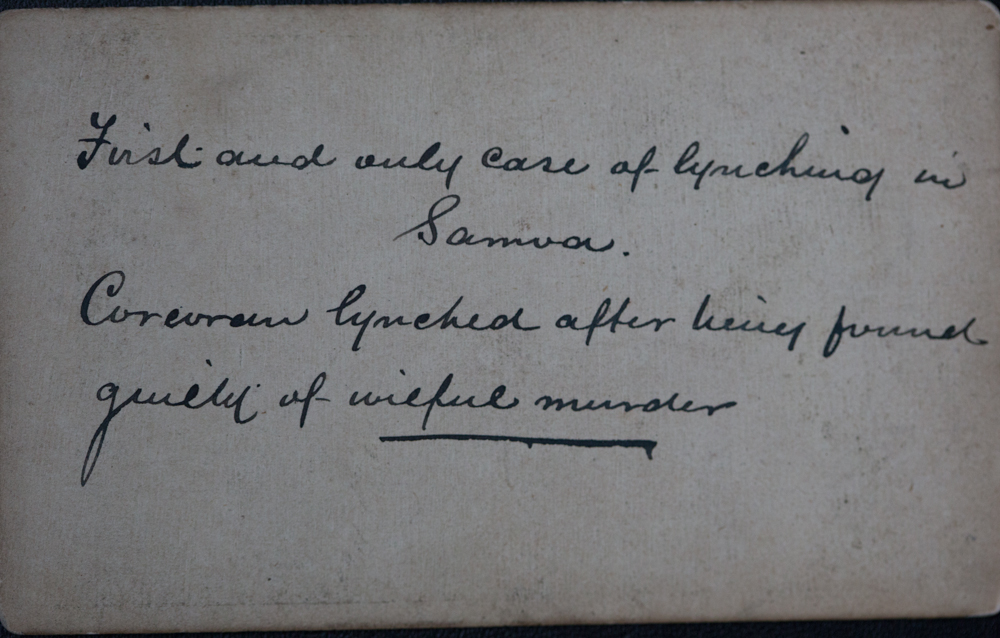 First and only case of lynching in
Samoa.
Corcoran lynched after being found
guilty of wilful murder